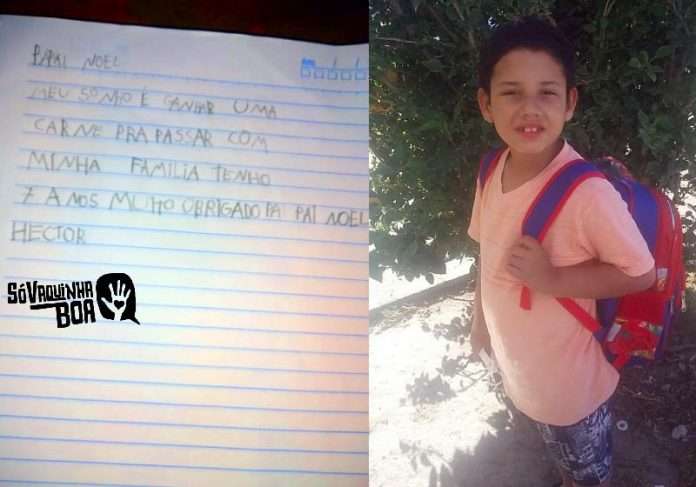 PAPAI NOEL
MEU SONHO É GANHAR UMA
CARNE PRA PASSAR COM
MINHA FAMILIA TENHO
7 ANOS MUITO OBRIGADO PA PAI NOEL
HECTOR
SÓ VAQUINHA
BOA